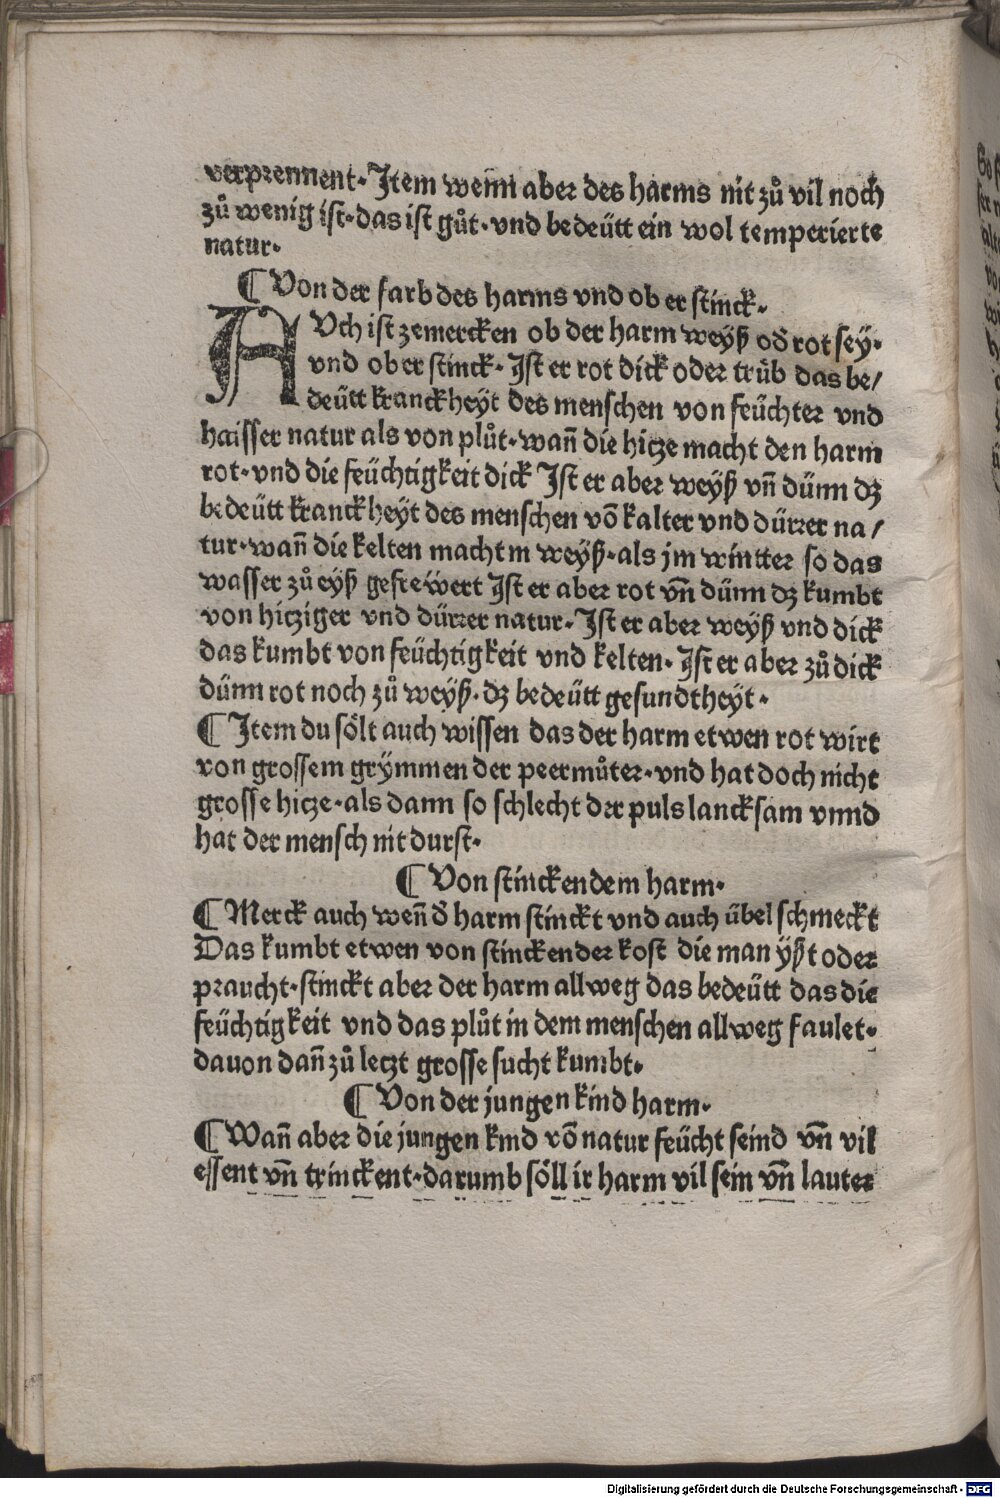 verprennent· Item wenn aber des harms nit zů vil noch
zů wenig ist· das ist gůt· vnd bedeütt ein wol temperierte
natur·
¶ Von der farb des harms vnd ob er stinck·
AVch ist zemercken ob der harm weyß od̛ rot sey·
vnd ob er stinck· Ist er rot dick oder trüb das be/
deütt kranckheyt des menschen von feüchter vnd
haisser natur als von plůt· wañ die hitze macht den harm
rot· vnd die feüchtigkeit dick Ist er aber weyß vñ dünn dz
bedeütt kranckheyt des menschen võ kalter vnd dürrer na/
tur· wañ die kelten macht in weyß· als jm wintter so das
wasser zů eyß gefrewert Ist er aber rot vñ dünn dz kumbt
von hitziger vnd dürrer natur· Ist er aber weyß vnd dick
das kumbt von feüchtigkeit vnd kelten· Ist er aber zů dick
dünn rot noch zů weyß· dz bedeütt gesundtheyt·
¶ Item du sölt auch wissen das der harm etwen rot wirt
von grossem grymmen der peermůter· vnd hat doch nicht
grosse hitze· als dann so schlecht der puls lancksam vnnd
hat der mensch nit durst·
¶ Von stinckendem harm·
¶ Merck auch weñ d̛ harm stinckt vnd auch übel schmeckt
Das kumbt etwen von stinckender kost die man yßt oder
praucht· stinckt aber der harm allweg das bedeütt das die
feüchtigkeit vnd das plůt in dem menschen allweg faulet·
dauon dañ zů letzt grosse sucht kumbt·
¶ Von der jungen kind harm·
¶ Wañ aber die jungen kind võ natur feücht seind vñ vil
essent vñ trinckent· darumb söll ir harm vil sein vñ lauter
Digitalisierung gefördert durch die Deutsche Forschungsgemeinschaft - DFG